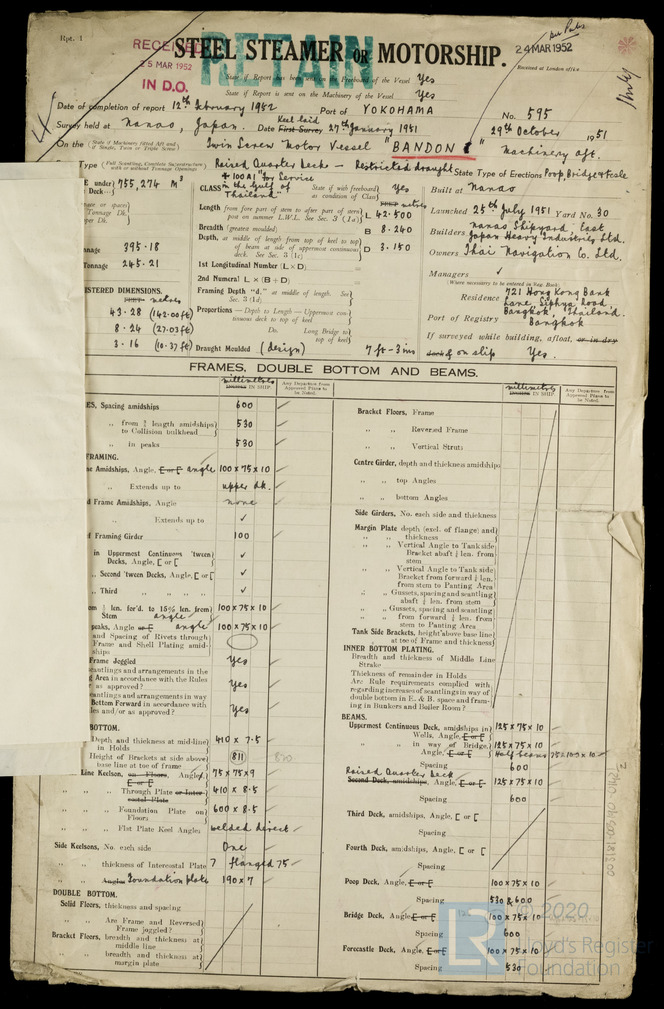 Rpt. 1
RECEIVED
25 MAR 1952
IN D.O.
RETAIN
STEEL STEAMER OR MOTORSHIP.
24 MAR 1952
Received at London office
State if Report has been sent on the Freeboard of the Vessel Yes
State if Report is sent on the Machinery of the Vessel Yes
Date of completion of report 12th February 1952 Port of YOKOHAMA No. 595
Survey held at Nanao, Japan. Date First Survey Keel laid 27th January 1951 29th October 1951
On the (State if Machinery fitted Aft and if Single, Twin or Triple Screw) Twin Screw Motor Vessel "BANDON" Machinery aft.
Type (Full Scantling, Complete Superstructure with or without Tonnage Openings) Raised Quarter Deck - Restricted draught State Type of Erections Poop, Bridge & Fcsle
under Deck 755,274 M3
Tonnage Dk.
per Dk.
nnage 395.18
Tonnage 245.21
CLASS +100 A1 "for Service in the Gulf of Thailand" State if with freeboard as condition of Class Yes
metres
Length from fore part of stem to after part of stern post on summer L.W.L. See Sec. 3 (1a) L 42.500
Breadth (greatest moulded) B 8.240
Depth, at middle of length from top of keel to top of beam at side of uppermost continuous deck. See Sec. 3 (1c) D 3.150
1st Longitudinal Number (L × D)
2nd Numeral L × (B + D)
Framing Depth "d," at middle of length. See Sec. 3 (1d)
Proportions — Depth to Length — Uppermost continuous deck to top of keel
Do. Long Bridge to top of keel
Draught Moulded (design) 7 ft - 3 ins
ISTERED DIMENSIONS.
metres
43.28 (142.00 ft)
8.24 (27.03 ft)
3.16 (10.37 ft)
Built at Nanao
Launched 25th July 1951 Yard No. 30
Builders Nanao Shipyard, East Japan Heavy Industries Ltd.
Owners Thai Navigation Co. Ltd.
Managers ✓
(Where necessary to be entered in Reg. Book)
Residence 721 Hong Kong Bank Lane, Siphya Road, Bangkok, Thailand.
Port of Registry Bangkok
If surveyed while building, afloat, or in dry dock & on slip Yes.
FRAMES, DOUBLE BOTTOM AND BEAMS.
millimetres
IN SHIP.
Any Departure from Approved Plans to be Noted.
ES, Spacing amidships 600
„ from ⅕ length amidships to Collision bulkhead 530
„ in peaks 530
FRAMING.
ne Amidships, Angle, E or E angle 100 × 75 × 10
„ Extends up to upper dk.
d Frame Amidships, Angle none
„ Extends up to ✓
d Framing Girder 100
in Uppermost Continuous 'tween Decks, Angle, [ or [ ✓
„ Second 'tween Decks, Angle, [ or [ ✓
„ Third „ „ „ „ ✓
om ⅕ len. for'd. to 15% len. from Stem angle 100 × 75 × 10
peaks, Angle or E angle 100 × 75 × 10
and Spacing of Rivets through Frame and Shell Plating amidships
Frame Joggled Yes
cantlings and arrangements in the g Area in accordance with the Rules or as approved? Yes
cantlings and arrangements in way Bottom Forward in accordance with les and/or as approved? Yes
BOTTOM.
Depth and thickness at mid-line in Holds 410 × 7.5
Height of Brackets at side above base line at toe of frame 811 870
Line Keelson, on Floors, Angle, E or E 75 × 75 × 9
„ „ Through Plate or Intercostal Plate 410 × 8.5
„ „ Foundation Plate on Floors 600 × 8.5
„ „ Flat Plate Keel Angles welded direct
Side Keelsons, No. each side One
„ „ thickness of Intercostal Plate 7 flanged 75
„ „ Angles Foundation plate 190 × 7
DOUBLE BOTTOM.
Solid Floors, thickness and spacing
„ „ Are Frame and Reversed Frame joggled?
Bracket Floors, breadth and thickness at middle line
„ „ breadth and thickness at margin plate
millimetres
IN SHIP.
Any Departure from Approved Plans to be Noted.
Bracket Floors, Frame
„ „ Reversed Frame
„ „ Vertical Struts
Centre Girder, depth and thickness amidships
„ „ top Angles
„ „ bottom Angles
Side Girders, No. each side and thickness
Margin Plate depth (excl. of flange) and thickness
„ „ Vertical Angle to Tank side Bracket abaft ¼ len. from stem
„ „ Vertical Angle to Tank side Bracket from forward ¼ len. from stem to Panting Area
„ „ Gussets, spacing and scantling abaft ¼ len. from stem
„ „ Gussets, spacing and scantling from forward ¼ len. from stem to Panting Area
Tank Side Brackets, height above base line at toe of Frame and thickness
INNER BOTTOM PLATING.
Breadth and thickness of Middle Line Strake
Thickness of remainder in Holds
Are Rule requirements complied with regarding increases of scantlings in way of double bottom in E. & B. space and framing in Bunkers and Boiler Room?
BEAMS.
Uppermost Continuous Deck, amidships in Wells, Angle, E or E 125 × 75 × 10
„ „ in way of Bridge, Angle, E or E 125 × 75 × 10 Half beams 75 × 100 × 10
Spacing 600
Raised Quarter Deck
Second Deck, amidships, Angle, E or E 125 × 75 × 10
Spacing 600
Third Deck, amidships, Angle, [ or [
Spacing
Fourth Deck, amidships, Angle, [ or [
Spacing
Poop Deck, Angle, E or E 100 × 75 × 10
Spacing 530 & 600
Bridge Deck, Angle, E or E 100 × 75 × 10
Spacing 600
Forecastle Deck, Angle, E or E 100 × 75 × 10
Spacing 530
© 2020
Lloyd's Register
Foundation